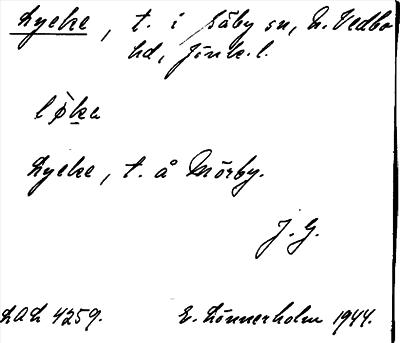 Lycke, t. i Säby sn, N. Vedbo
hd, Jönk. l.
lỳka
Lycke, t. å Mörby.
J. G.
LAL 4259. E. Lönnerholm 1944.